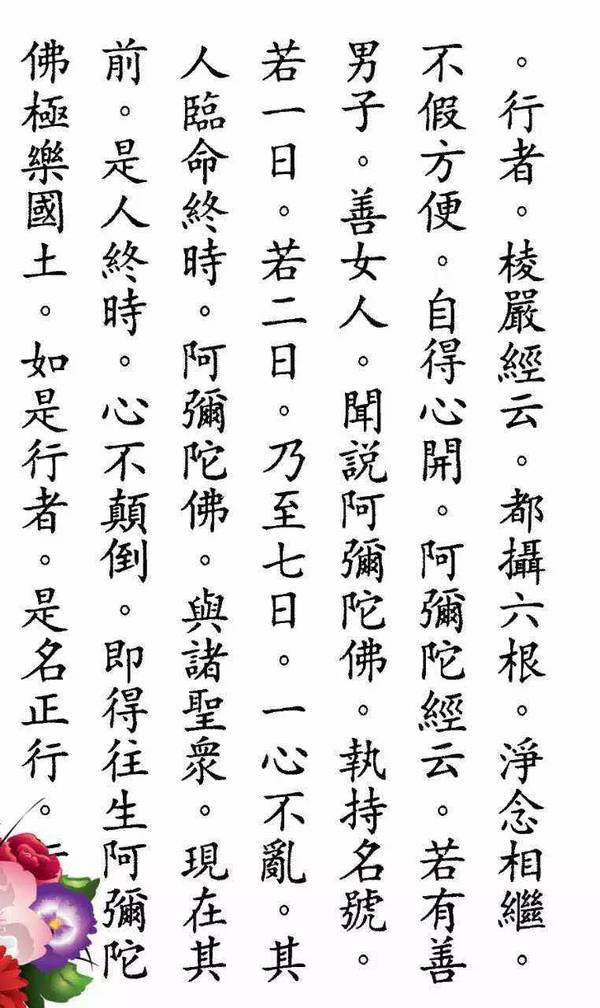 。行者。棱嚴經云。都攝六根。淨念相繼。
不假方便。自得心開。阿彌陀經云。若有善
男子。善女人。聞說阿彌陀佛。執持名號。
若一日。若二日。乃至七日。一心不亂。其
人臨命終時。阿彌陀佛。與諸聖衆。現在其
前。是人終時。心不顛倒。即得往生阿彌陀
佛極樂國土。如是行者。是名正行。